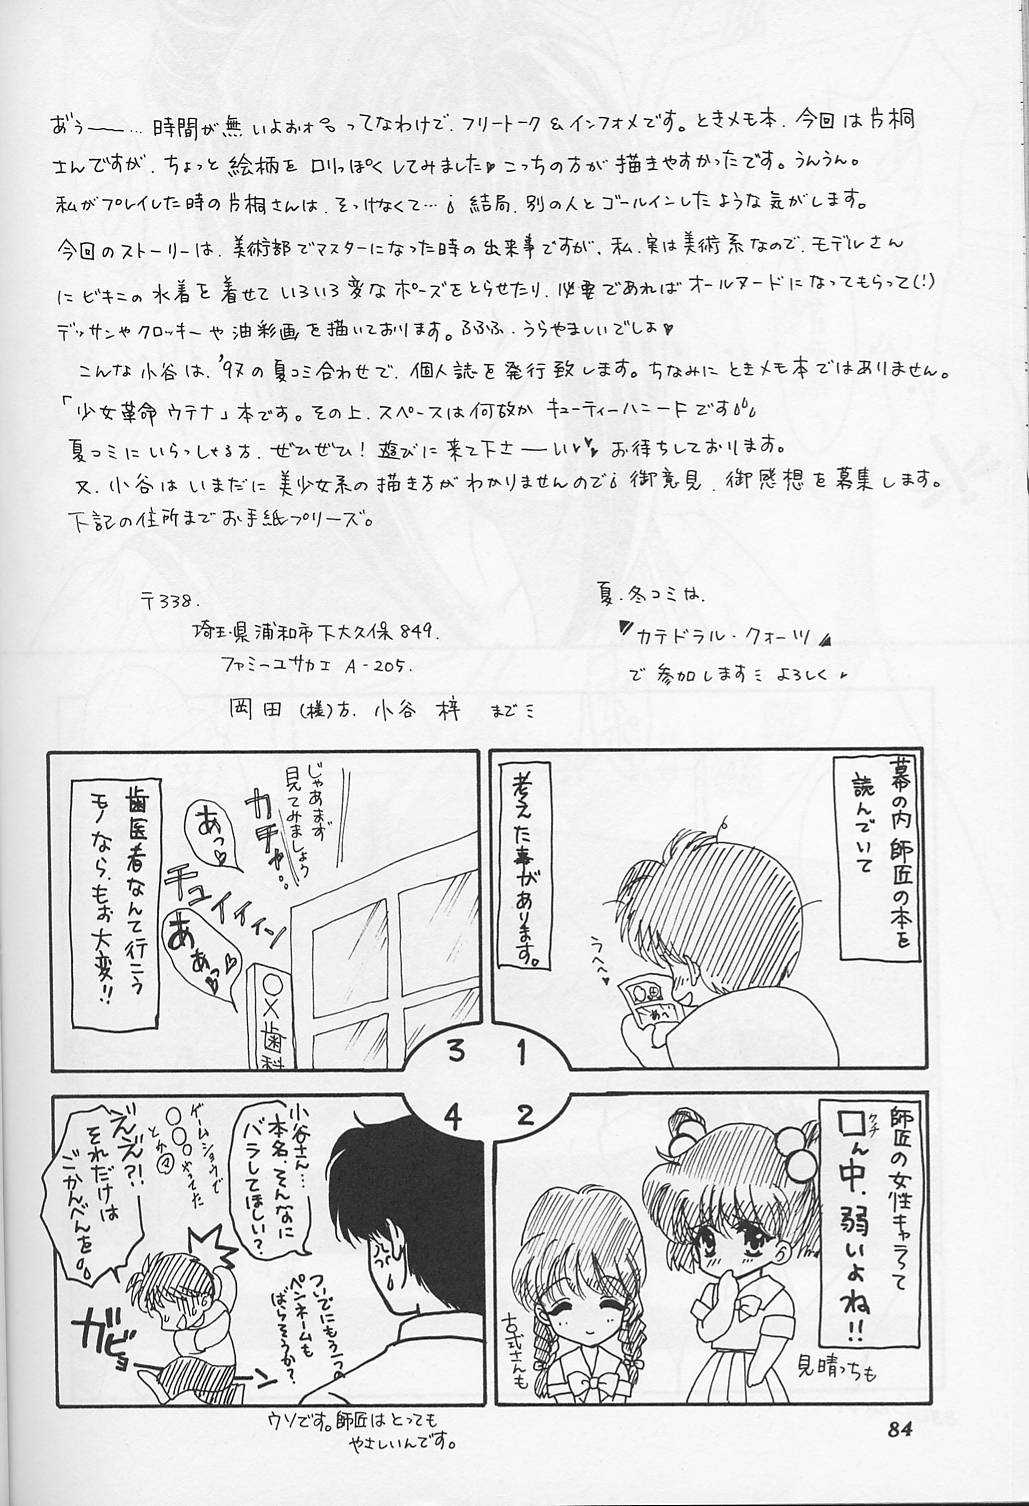 あ゛ぅ――… 時間が無いよおォ。ってなわけで、フリートーク＆インフォメです。ときメモ本、今回は片桐
さんですが、ちょっと絵柄をロリっぽくしてみました♥こっちの方が描きやすかったです。うんうん。
私がプレイした時の片桐さんは、そっけなくて…¡ 結局、別の人とゴールインしたような気がします。
今回のストーリーは、美術部でマスターになった時の出来事ですが、私、実は美術系なので、モデルさん
にビキニの水着を着せていろいろ変なポーズをとらせたり、必要であればオールヌードになってもらって(!)
デッサンやクロッキーや油彩画を描いております。るふふ、うらやましいでしょ♥
こんな小谷は、'97の夏コミ合わせで、個人誌を発行致します。ちなみにときメモ本ではありません。
「少女革命ウテナ」本です。その上、スペースは何故かキューティーハニードです
夏コミにいらっしゃる方、ぜひぜひ！遊びに来て下さ――い♥♥ お待ちしております。
又、小谷はいまだに美少女系の描き方がわかりませんので¡御意見、御感想を募集します。
下記の住所までお手紙プリーズ。
〒338.
埼玉県浦和市下大久保849.
ファミーユサカエ A-205.
岡田(様)方、小谷 梓 までミ
夏、冬コミは、
"カテドラル・クォーツ"
で参加しますミ よろしく♥
幕の内師匠の本を
読んでいて
考えた事があります。
うへへ♥
1
師匠の女性キャラって
口ん中、弱いよね!!
クチ
見晴っちも
古式さんも
2
じゃあまず
見てみましょう
カチャ…
あっ♥
チュイイィン
あぁっ♥♥
〇×歯科
歯医者なんて行こう
モノなら、もお大変!!
3
小谷さん…
本名、そんなに
バラしてほしい？
ゲームショウで
〇〇〇やってた
とか㋮
ええ?!
それだけは
ごかんべんを
ガビョーーン
ついでにもう一つの
ペンネームも
ばらそうか？
4
ウソです。師匠はとっても
やさしいんです。
84